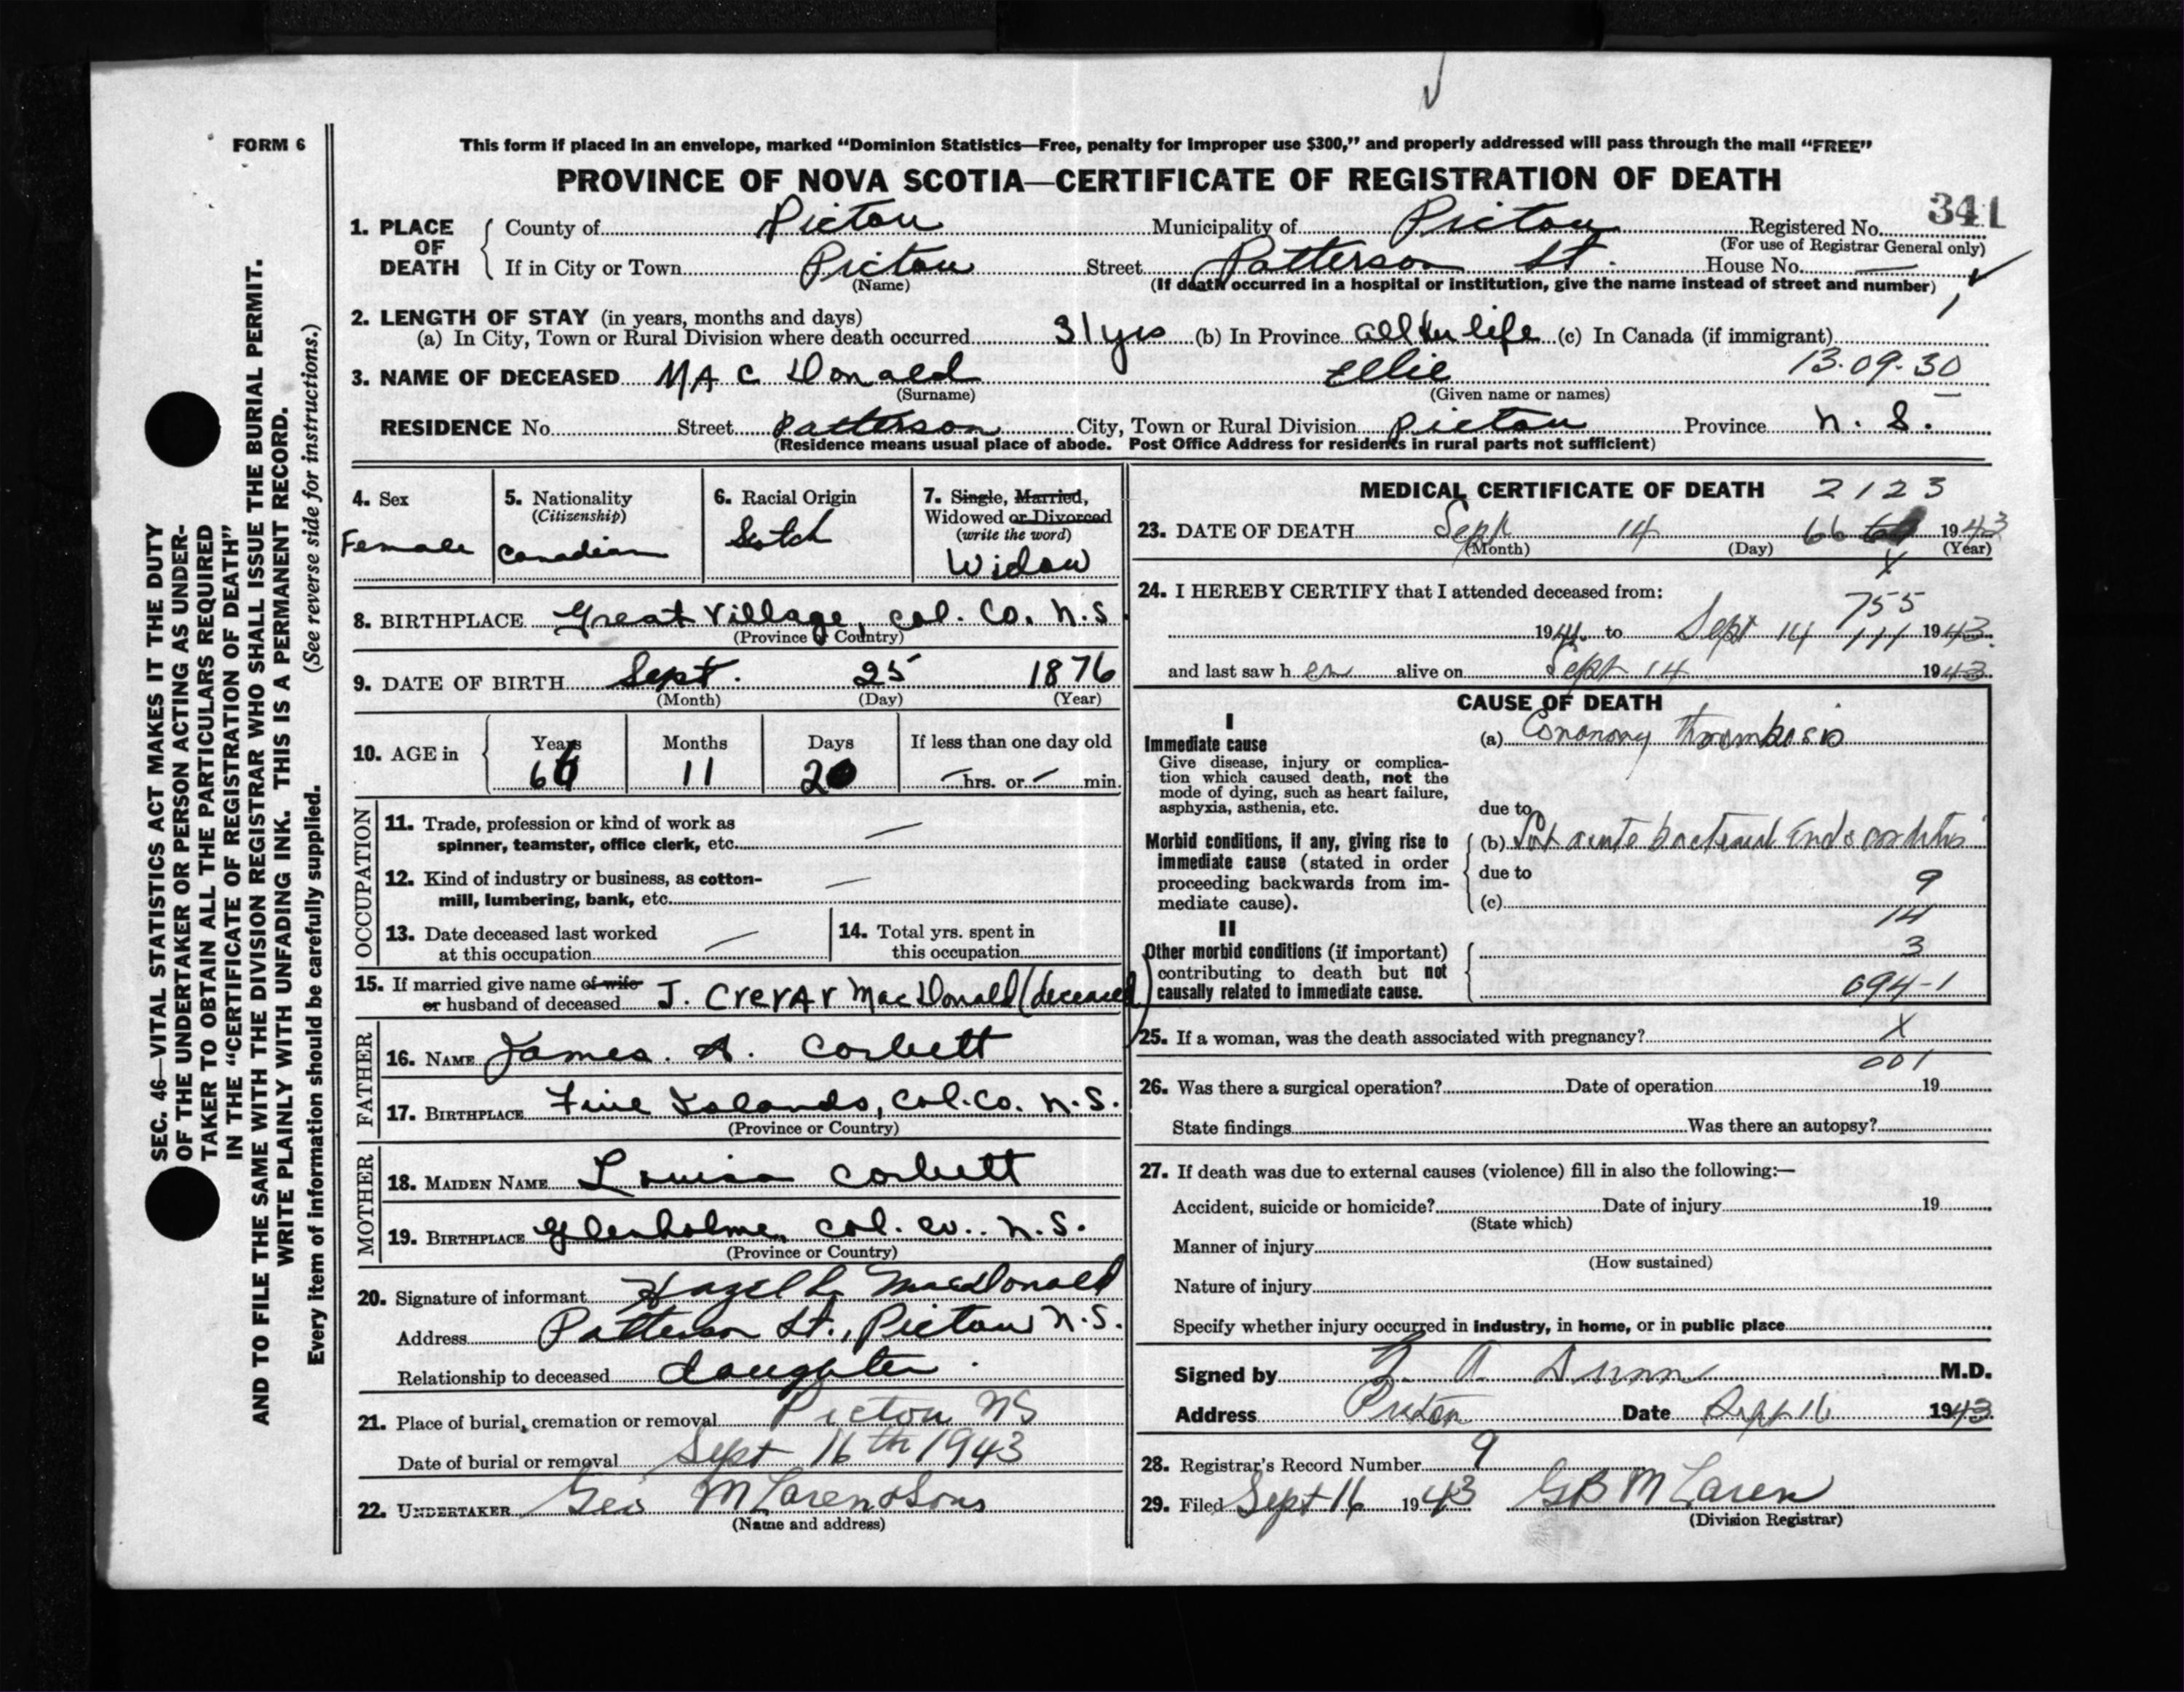 FORM 6
This form if placed in an envelope, marked “Dominion Statistics—Free, penalty for improper use $300,” and properly addressed will pass through the mail “FREE”
PROVINCE OF NOVA SCOTIA—CERTIFICATE OF REGISTRATION OF DEATH
341
1. PLACE OF DEATH County of Pictou Municipality of Pictou Registered No.
(For use of Registrar General only)
If in City or Town Pictou Street Patterson St. House No. —
(Name) (If death occurred in a hospital or institution, give the name instead of street and number)
2. LENGTH OF STAY (in years, months and days)
(a) In City, Town or Rural Division where death occurred 31 yrs (b) In Province all her life (c) In Canada (if immigrant)
3. NAME OF DECEASED MacDonald Ellie 13.09.30
(Surname) (Given name or names)
RESIDENCE No. Street Patterson City, Town or Rural Division Pictou Province N. S.
(Residence means usual place of abode. Post Office Address for residents in rural parts not sufficient)
4. Sex
Female
5. Nationality
(Citizenship)
Canadian
6. Racial Origin
Scotch
7. Single, Married,
Widowed or Divorced
(write the word)
Widow
8. BIRTHPLACE Great Village, Col. Co. N.S
(Province or Country)
9. DATE OF BIRTH Sept. 25 1876
(Month) (Day) (Year)
10. AGE in Years Months Days If less than one day old
66 11 20 — hrs. or — min.
OCCUPATION
11. Trade, profession or kind of work as
spinner, teamster, office clerk, etc. —
12. Kind of industry or business, as cotton-
mill, lumbering, bank, etc. —
13. Date deceased last worked
at this occupation —
14. Total yrs. spent in
this occupation
15. If married give name of wife
or husband of deceased J. Crerar MacDonald (deceased)
FATHER
16. NAME James. A. Corbett
17. BIRTHPLACE Five Islands, Col. Co. N.S.
(Province or Country)
MOTHER
18. MAIDEN NAME Louisa Corbett
19. BIRTHPLACE Glenholme, Col. Co.. N.S.
(Province or Country)
20. Signature of informant Hazel L. MacDonald
Address Patterson St., Pictou N.S.
Relationship to deceased daughter.
21. Place of burial, cremation or removal Pictou NS
Date of burial or removal Sept 16th 1943
22. UNDERTAKER Geo McLaren & Sons
(Name and address)
MEDICAL CERTIFICATE OF DEATH 2123
23. DATE OF DEATH Sept 14 66 1943
(Month) (Day) (Year)
X
24. I HEREBY CERTIFY that I attended deceased from:
755
194 to Sept 14 111 1943.
and last saw her alive on Sept 14 1943
CAUSE OF DEATH
I
Immediate cause
Give disease, injury or complica-
tion which caused death, not the
mode of dying, such as heart failure,
asphyxia, asthenia, etc.
(a) Coronary Thrombosis
due to
Morbid conditions, if any, giving rise to
immediate cause (stated in order
proceeding backwards from im-
mediate cause).
(b) Sub acute bacterial Endocarditis
due to
9
(c)
14
II
Other morbid conditions (if important)
contributing to death but not
causally related to immediate cause.
3
094-1
25. If a woman, was the death associated with pregnancy? X
001
26. Was there a surgical operation? Date of operation 19
State findings Was there an autopsy?
27. If death was due to external causes (violence) fill in also the following:—
Accident, suicide or homicide? Date of injury 19
(State which)
Manner of injury
(How sustained)
Nature of injury
Specify whether injury occurred in industry, in home, or in public place
Signed by A. Dunn M.D.
Address Pictou Date Sept 16 1943
28. Registrar’s Record Number 9
29. Filed Sept 16 1943 GB McLaren
(Division Registrar)
SEC. 46—VITAL STATISTICS ACT MAKES IT THE DUTY
OF THE UNDERTAKER OR PERSON ACTING AS UNDER-
TAKER TO OBTAIN ALL THE PARTICULARS REQUIRED
IN THE “CERTIFICATE OF REGISTRATION OF DEATH”
AND TO FILE THE SAME WITH THE DIVISION REGISTRAR WHO SHALL ISSUE THE BURIAL PERMIT.
WRITE PLAINLY WITH UNFADING INK. THIS IS A PERMANENT RECORD.
Every item of information should be carefully supplied. (See reverse side for instructions.)